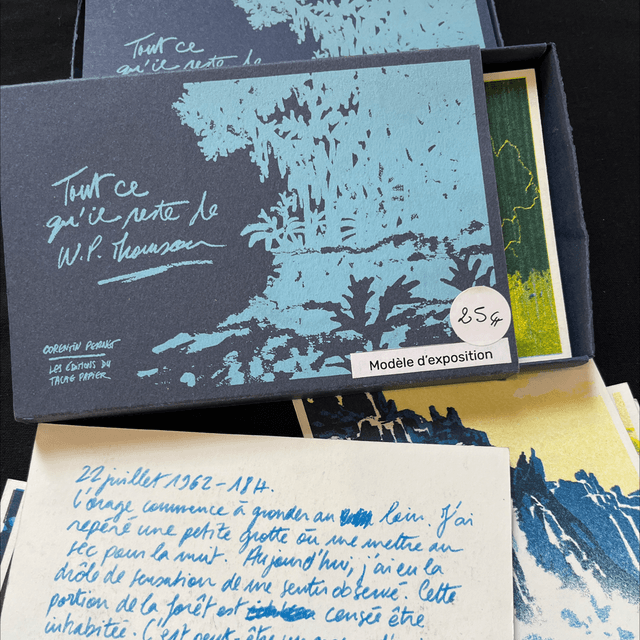 Tout ce
qu'il reste de
Tout ce
qu'il reste de
W.P. Thomson
CORENTIN PERNET
LES ÉDITIONS DU
TACAG PAPIER
25€
Modèle d'exposition
22 juillet 1962 - 18H.
L'orage commence à gronder au loin. J'ai
repéré une petite grotte où me mettre au
sec pour la nuit. Aujourd'hui, j'ai eu la
drôle de sensation de me sentir observé. Cette
portion de la forêt est censée être
inhabitée. C'est peut-être